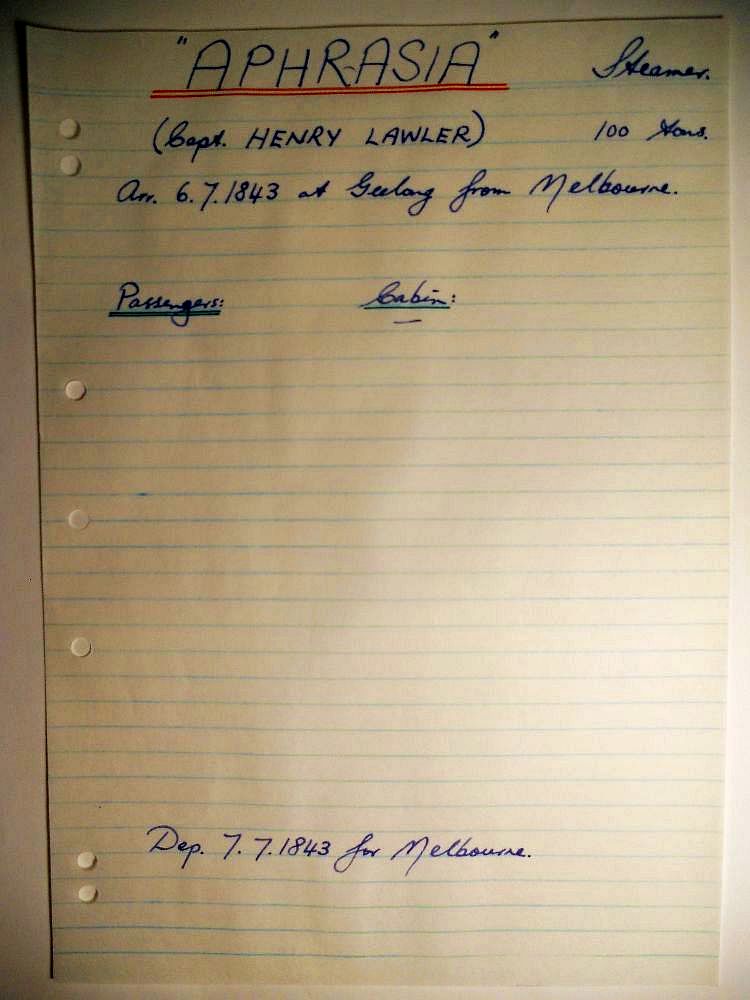 "APHRASIA" Steamer.
(Capt. HENRY LAWLER) 100 tons.
Arr. 6.7.1843 at Geelong from Melbourne.
Passengers: Cabin:
—
Dep. 7.7.1843 for Melbourne.